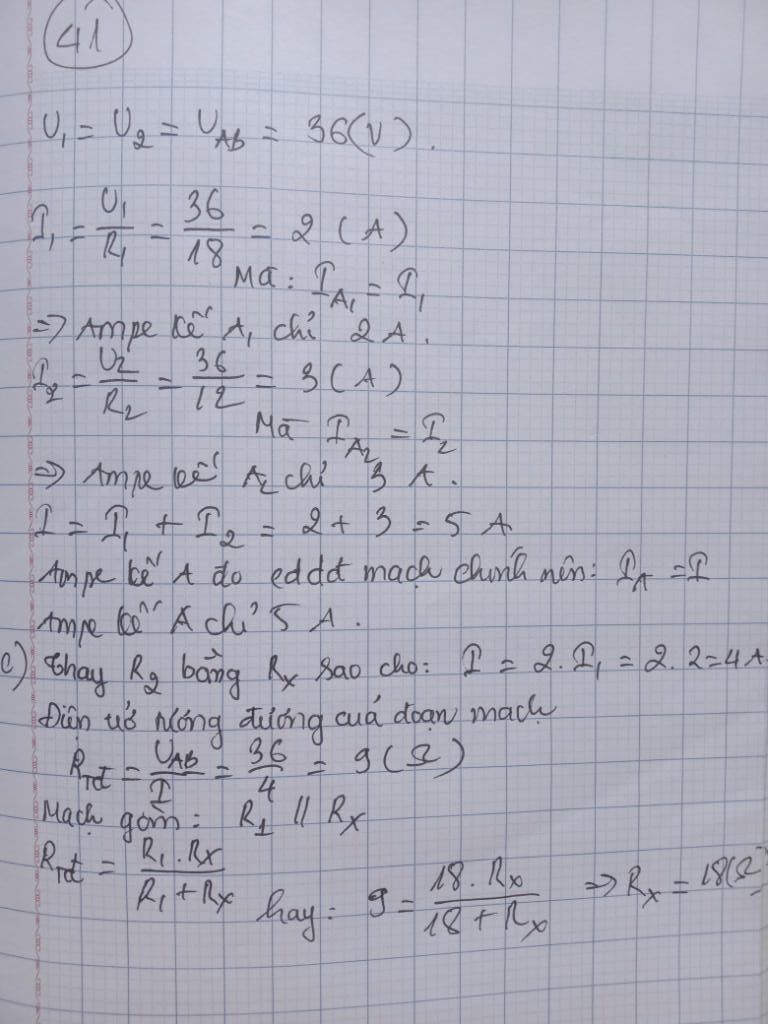 41
U₁ = U₂ = U_AB = 36(V).
I₁ = U₁/R₁ = 36/18 = 2 (A)
Mà: I_A₁ = I₁
=> Ampe kế A₁ chỉ 2 A.
I₂ = U₂/R₂ = 36/12 = 3 (A)
Mà I_A₂ = I₂
=> Ampe kế A₂ chỉ 3 A.
I = I₁ + I₂ = 2 + 3 = 5 A
Ampe kế A đo cdđđ mạch chính nên: I_A = I
Ampe kế A chỉ 5 A.
c) Thay R₂ bằng Rₓ sao cho: I = 2.I₁ = 2.2=4A
Điện trở tương đương của đoạn mạch
R_Tđ = U_AB/I = 36/4 = 9 (Ω)
Mạch gồm: R₁ // Rₓ
R_Tđ = R₁.Rₓ/R₁+Rₓ hay: 9 = 18.Rₓ/18+Rₓ => Rₓ = 18(Ω)